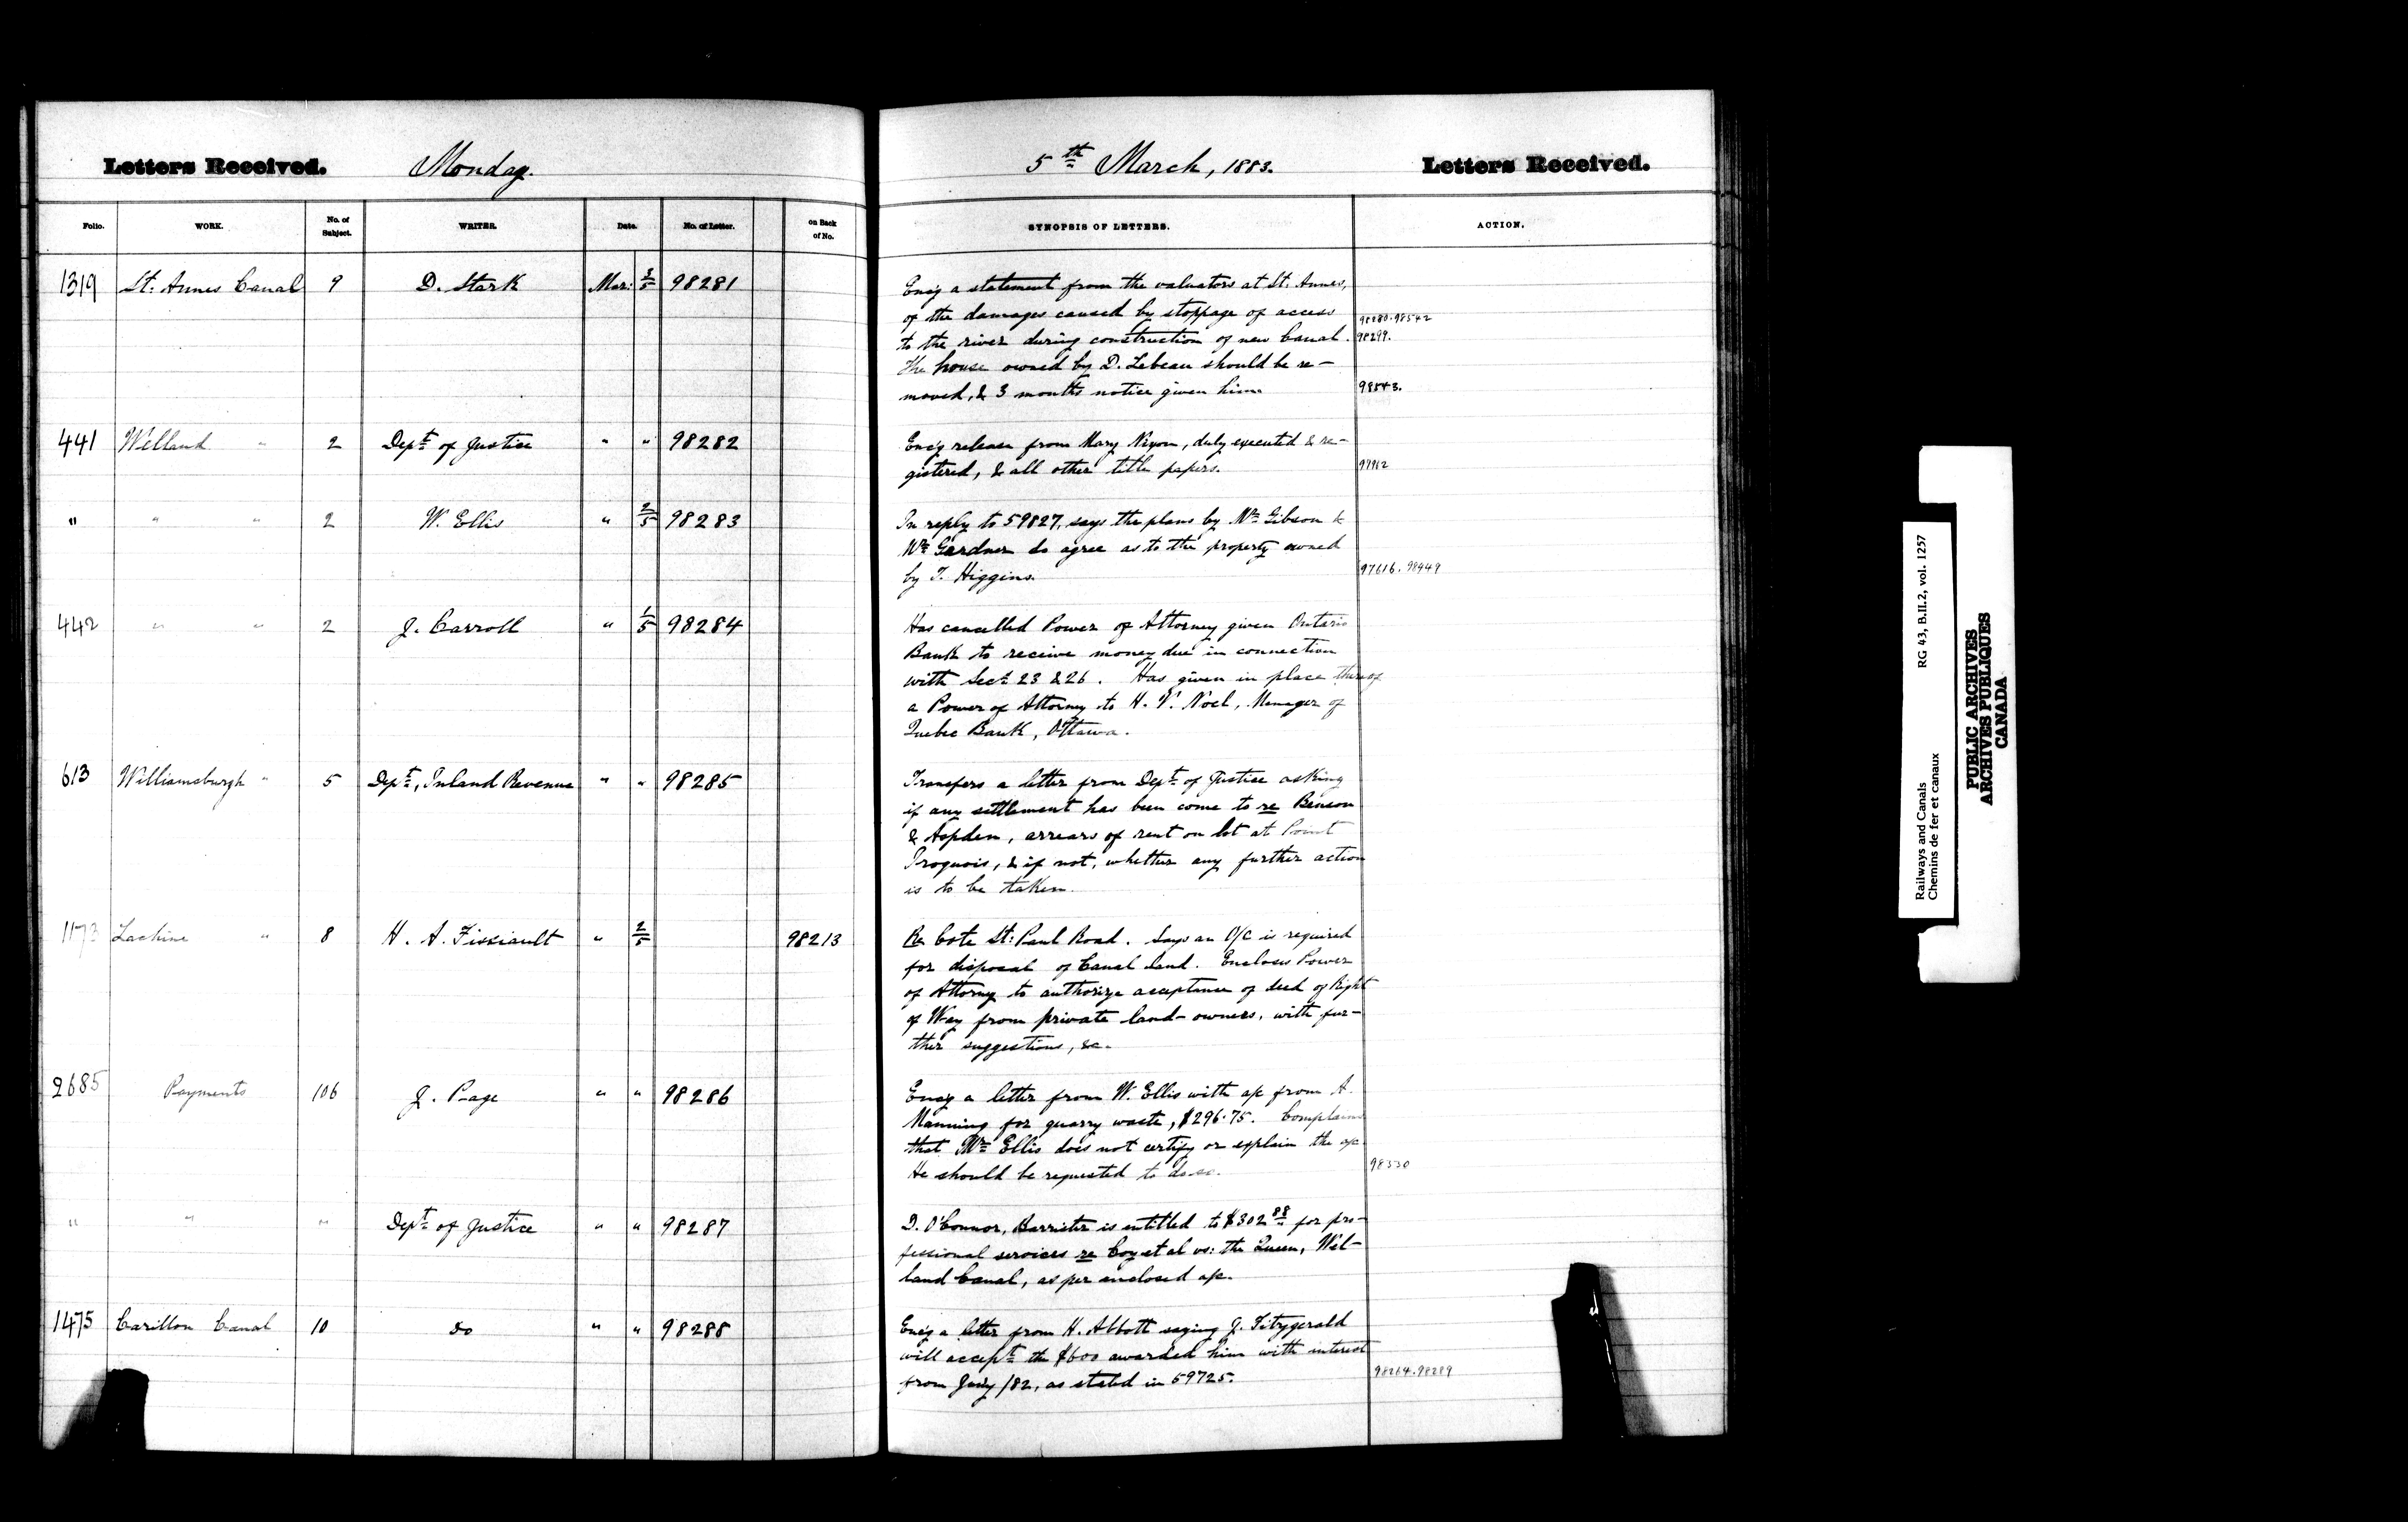 Letters Received. Monday.
5th March, 1883. Letters Received.
Folio. WORK. No. of Subject. WRITER. Date. No. of Letter. on Back of No.
SYNOPSIS OF LETTERS. ACTION.
1319 St. Annes Canal 9 D. Stark Mar. 3/5 98281
Enc'g a statement from the valuators at St. Annes,
of the damages caused by stoppage of access 98280.98542
to the river during construction of new Canal. 98299.
The house owned by D. Lebeau should be re-
moved, & 3 months notice given him. 98543.
441 Welland " 2 Dept. of Justice " " 98282
Enc'g release from Mary Nixon, duly executed & re-
gistered, & all other title papers. 97912
" " " 2 W. Ellis " 2/5 98283
In reply to 59827, says the plans by Mr. Gibson &
Mr. Gardner do agree as to the property owned
by T. Higgins. 97616.98949
442 " " 2 J. Carroll " 1/5 98284
Has cancelled Power of Attorney given Ontario
Bank to receive money due in connection
with Sect. 23 & 26. Has given in place thereof
a Power of Attorney to H. V. Noel, Manager of
Quebec Bank, Ottawa.
613 Williamsburgh " 5 Dept., Inland Revenue " " 98285
Transfers a letter from Dept. of Justice asking
if any settlement has been come to re Benson
& Aspden, arrears of rent on lot at Point
Iroquois, & if not, whether any further action
is to be taken.
1173 Lachine " 8 H. A. Fissiault " 2/5 98213
Re Cote St: Paul Road. Says an O/C is required
for disposal of Canal land. Encloses Power
of Attorney to authorize acceptance of deed of Right
of Way from private land-owners, with fur-
ther suggestions, &c.
2685 Payments 106 J. Page " " 98286
Enc'g a letter from W. Ellis with a/c from A.
Manning for quarry waste, $296.75. Complains
that Mr. Ellis does not certify or explain the a/c
He should be requested to do so. 98330
" " " Dept. of Justice " " 98287
D. O'Connor, Barrister is entitled to $302.88 for pro-
fessional services re Coy et al vs: the Queen, Wel-
land Canal, as per enclosed a/c.
1475 Carillon Canal 10 Do " " 98288
Enc'g a letter from H. Abbott saying J. Fitzgerald
will accept the $600 awarded him with interest
from July /82, as stated in 59725. 98264.98289
Railways and Canals RG 43, B.II.2, vol. 1257
Chemins de fer et canaux
PUBLIC ARCHIVES
ARCHIVES PUBLIQUES
CANADA